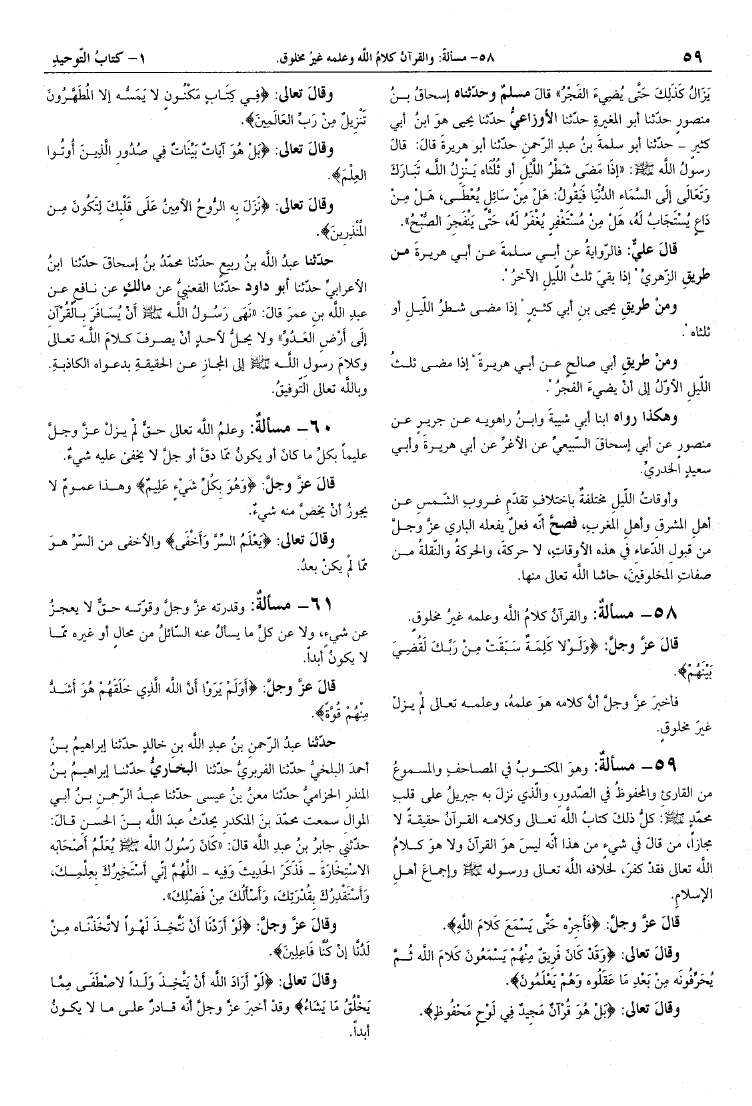 ٥٩
٥٨- مسألةٌ: والقرآنُ كلامُ الله وعلمه غيرُ مخلوقٍ.
١- كتابُ التّوحيدِ
يَزَالُ كَذَلِكَ حَتَّى يُضِيءَ الفَجْرُ» قالَ مسلمٌ وحدّثناه إسحاقُ بنُ
منصورٍ حدّثنا أبو المغيرةِ حدّثنا الأوزاعيُّ حدّثنا يحيى هوَ ابنُ أبي
كثيرٍ - حدّثنا أبو سلمةَ بنُ عبدِ الرّحمنِ حدّثنا أبو هريرةَ قالَ: قالَ
رسولُ اللّه ﷺ: «إذَا مَضَى شَطْرُ اللَّيْلِ أو ثُلُثَاه يَنْزِلُ اللَّه تَبَارَكَ
وَتَعَالَى إلَى السَّمَاءِ الدُّنْيَا فَيَقُولُ: هَلْ مِنْ سَائِلٍ يُعْطَى، هَلْ مِنْ
دَاعٍ يُسْتَجَابُ لَه، هَلْ مِنْ مُسْتَغْفِرٍ يُغْفَرُ لَه، حَتَّى يَنْفَجِرَ الصُّبْحُ».
قالَ عليٌّ: فالرّوايةُ عن أبي سلمةَ عن أبي هريرةَ من
طريقِ الزّهريِّ "إذا بقيَ ثلثُ اللّيلِ الآخرُ".
ومنْ طريقِ يحيى بنِ أبي كثيرٍ "إذا مضى شطرُ اللّيلِ أو
ثلثاه".
ومنْ طريقِ أبي صالحٍ عن أبي هريرةَ "إذا مضى ثلثُ
اللّيلِ الأوّلُ إلى أنْ يضيءَ الفجرُ".
وهكذا رواه ابنا أبي شيبةَ وابنُ راهويه عن جريرٍ عن
منصورٍ عن أبي إسحاقَ السّبيعيِّ عن الأغرِّ عن أبي هريرةَ وأبي
سعيدٍ الخدريِّ.
وأوقاتُ اللّيلِ مختلفةٌ باختلافِ تقدّمِ غروبِ الشّمسِ عن
أهلِ المشرقِ وأهلِ المغربِ، فصحَّ أنّه فعلٌ يفعله الباري عزَّ وجلَّ
من قبولِ الدّعاءِ في هذه الأوقاتِ، لا حركةٌ، والحركةُ والنّقلةُ من
صفاتِ المخلوقينَ، حاشا اللّه تعالى منها.
٥٨- مسألةٌ: والقرآنُ كلامُ اللّه وعلمه غيرُ مخلوقٍ.
قالَ عزَّ وجلَّ: ﴿وَلَوْلا كَلِمَةٌ سَبَقَتْ مِنْ رَبِّكَ لَقُضِيَ
بَيْنَهُمْ﴾.
فأخبرَ عزَّ وجلَّ أنَّ كلامه هوَ علمهُ، وعلمه تعالى لمْ يزلْ
غيرَ مخلوقٍ.
٥٩- مسألةٌ: وهوَ المكتوبُ في المصاحفِ والمسموعُ
من القارئِ والمحفوظُ في الصّدورِ، والّذي نزلَ به جبريلُ على قلبِ
محمّدٍ ﷺ: كلُّ ذلكَ كتابُ اللّه تعالى وكلامه القرآنُ حقيقةً لا
مجازاً، من قالَ في شيءٍ من هذا أنّه ليسَ هوَ القرآنُ ولا هوَ كلامُ
اللّه تعالى فقدْ كفرَ، لخلافه اللّه تعالى ورسوله ﷺ وإجماعَ أهلِ
الإسلامِ.
قالَ عزَّ وجلَّ: ﴿فَأَجِرْه حَتَّى يَسْمَعَ كَلامَ اللَّه﴾.
وقالَ تعالى: ﴿وَقَدْ كَانَ فَرِيقٌ مِنْهُمْ يَسْمَعُونَ كَلامَ اللَّه ثُمَّ
يُحَرِّفُونَه مِنْ بَعْدِ مَا عَقَلُوه وَهُمْ يَعْلَمُونَ﴾.
وقالَ تعالى: ﴿بَلْ هُوَ قُرْآنٌ مَجِيدٌ فِي لَوْحٍ مَحْفُوظٍ﴾.
وقالَ تعالى: ﴿فِي كِتَابٍ مَكْنُونٍ لا يَمَسُّه إلا المُطَهَّرُونَ
تَنْزِيلٌ مِنْ رَبِّ العَالَمِينَ﴾.
وقالَ تعالى: ﴿بَلْ هُوَ آيَاتٌ بَيِّنَاتٌ فِي صُدُورِ الَّذِينَ أُوتُوا
العِلْمَ﴾.
وقالَ تعالى: ﴿نَزَلَ بِه الرُّوحُ الأمِينُ عَلَى قَلْبِكَ لِتَكُونَ مِن
المُنْذِرِينَ﴾.
حدّثنا عبدُ اللّه بنُ ربيعٍ حدّثنا محمّدُ بنُ إسحاقَ حدّثنا ابنُ
الأعرابيِّ حدّثنا أبو داود حدّثنا القعنبيُّ عن مالكٍ عن نافعٍ عن
عبدِ اللّه بنِ عمرَ قالَ: «نَهَى رَسُولُ اللَّه ﷺ أَنْ يُسَافَرَ بِالْقُرْآنِ
إلَى أَرْضِ العَدُوِّ» ولا يحلُّ لأحدٍ أنْ يصرفَ كلامَ اللّه تعالى
وكلامَ رسولِ اللّه ﷺ إلى المجازِ عن الحقيقةِ بدعواه الكاذبةِ.
وباللّه تعالى التّوفيقُ.
٦٠- مسألةٌ: وعلمُ اللّه تعالى حقٌّ لمْ يزلْ عزَّ وجلَّ
عليماً بكلِّ ما كانَ أو يكونُ ممّا دقَّ أو جلَّ لا يخفى عليه شيءٌ.
قالَ عزَّ وجلَّ: ﴿وَهُوَ بِكُلِّ شَيْءٍ عَلِيمٌ﴾ وهذا عمومٌ لا
يجوزُ أنْ يخصَّ منه شيءٌ.
وقالَ تعالى: ﴿يَعْلَمُ السِّرَّ وَأَخْفَى﴾ والأخفى من السّرِّ هوَ
ممّا لمْ يكنْ بعدُ.
٦١- مسألةٌ: وقدرته عزَّ وجلَّ وقوّته حقٌّ لا يعجزُ
عن شيءٍ، ولا عن كلِّ ما يسألُ عنه السّائلُ من محالٍ أو غيره ممّا
لا يكونُ أبداً.
قالَ عزَّ وجلَّ: ﴿أَوَلَمْ يَرَوْا أَنَّ اللَّه الَّذِي خَلَقَهُمْ هُوَ أَشَدُّ
مِنْهُمْ قُوَّةً﴾.
حدّثنا عبدُ الرّحمنِ بنُ عبدِ اللّه بنِ خالدٍ حدّثنا إبراهيمُ بنُ
أحمدَ البلخيُّ حدّثنا الفربريُّ حدّثنا البخاريُّ حدّثنا إبراهيمُ بنُ
المنذرِ الحزاميُّ حدّثنا معنُ بنُ عيسى حدّثنا عبدُ الرّحمنِ بنُ أبي
الموالِ سمعت محمّدَ بنَ المنكدرِ يحدّثُ عبدَ اللّه بنَ الحسنِ قالَ:
حدّثني جابرُ بنُ عبدِ اللّه قالَ: «كَانَ رَسُولُ اللَّه ﷺ يُعَلِّمُ أَصْحَابَه
الاسْتِخَارَةَ - فَذَكَرَ الحَدِيثَ وَفِيه - اللَّهُمَّ إنِّي أَسْتَخِيرُكَ بِعِلْمِكَ،
وَأَسْتَقْدِرُكَ بِقُدْرَتِكَ، وَأَسْأَلُكَ مِنْ فَضْلِكَ».
وقالَ عزَّ وجلَّ: ﴿لَوْ أَرَدْنَا أَنْ نَتَّخِذَ لَهْواً لاتَّخَذْنَاه مِنْ
لَدُنَّا إنْ كُنَّا فَاعِلِينَ﴾.
وقالَ تعالى: ﴿لَوْ أَرَادَ اللَّه أَنْ يَتَّخِذَ وَلَداً لاصْطَفَى مِمَّا
يَخْلُقُ مَا يَشَاءُ﴾ وقدْ أخبرَ عزَّ وجلَّ أنّه قادرٌ على ما لا يكونُ
أبداً.